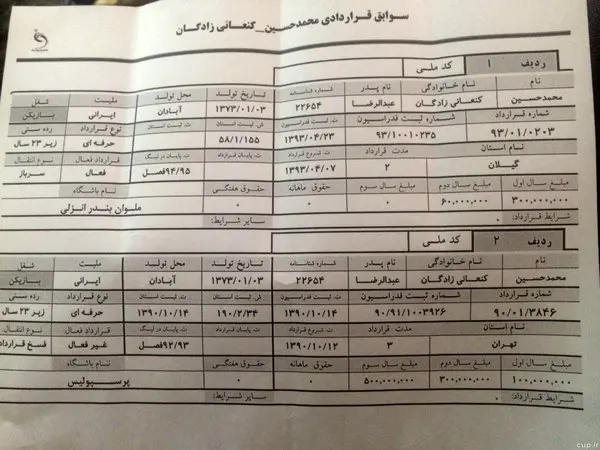 سوابق قراردادی محمدحسین_ کنعانی زادگان
ردیف ۱ کد ملی
نام نام خانوادگی نام پدر شماره شناسنامه تاریخ تولد محل تولد ملیت شغل
محمدحسین کنعانی زادگان عبدالرضا ۲۲۶۵۴ ۱۳۷۳/۰۱/۰۳ آبادان ایرانی بازیکن
شماره قرارداد شماره ثبت فدراسیون ت. ثبت فدراسیون ش. ثبت استان ت. ثبت استان نوع قرارداد رده سنی
۹۳/۰۱/۰۲۰۳ ۹۳/۱۰۰۱۰۲۳۵ ۱۳۹۳/۰۴/۲۳ ۵۸/۱/۱۵۵ حرفه ای زیر ۲۳ سال
نام استان مدت قرارداد ت. شروع قرارداد ت. پایان قرارداد ت. پایان در لیگ قرارداد فعال نوع انتقال
گیلان ۲ ۱۳۹۳/۰۴/۰۷ ۹۴/۹۵فصل فعال سرباز
مبلغ سال اول مبلغ سال دوم مبلغ سال سوم حقوق ماهانه حقوق هفتگی نام باشگاه
۳۰۰,۰۰۰,۰۰۰ ۶۰,۰۰۰,۰۰۰ ۰ ۰ ملوان بندر انزلی
شرایط قرارداد: ۰ سایر شرایط:
ردیف ۲ کد ملی
نام نام خانوادگی نام پدر شماره شناسنامه تاریخ تولد محل تولد ملیت شغل
محمدحسین کنعانی زادگان عبدالرضا ۲۲۶۵۴ ۱۳۷۳/۰۱/۰۳ آبادان ایرانی بازیکن
شماره قرارداد شماره ثبت فدراسیون ت. ثبت فدراسیون ش. ثبت استان ت. ثبت استان نوع قرارداد رده سنی
۹۰/۰۱/۳۸۴۶ ۹۰/۹۱/۱۰۰۳۹۲۶ ۱۳۹۰/۱۰/۱۴ ۱۹۰/۲/۳۴ ۱۳۹۰/۱۰/۱۴ حرفه ای زیر ۲۳ سال
نام استان مدت قرارداد ت. شروع قرارداد ت. پایان قرارداد ت. پایان در لیگ قرارداد فعال نوع انتقال
تهران ۳ ۱۳۹۰/۱۰/۱۲ ۹۲/۹۳فصل غیر فعال فسخ قرارداد
مبلغ سال اول مبلغ سال دوم مبلغ سال سوم حقوق ماهانه حقوق هفتگی نام باشگاه
۱۰۰,۰۰۰,۰۰۰ ۳۰۰,۰۰۰,۰۰۰ ۵۰۰,۰۰۰,۰۰۰ ۰ ۰ پرسپولیس
شرایط قرارداد: ۰ سایر شرایط:
cup.ir